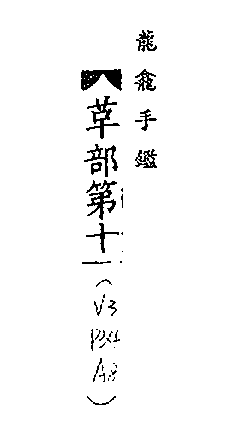 龍龕手鑑
草部第十一
(V3
A8)